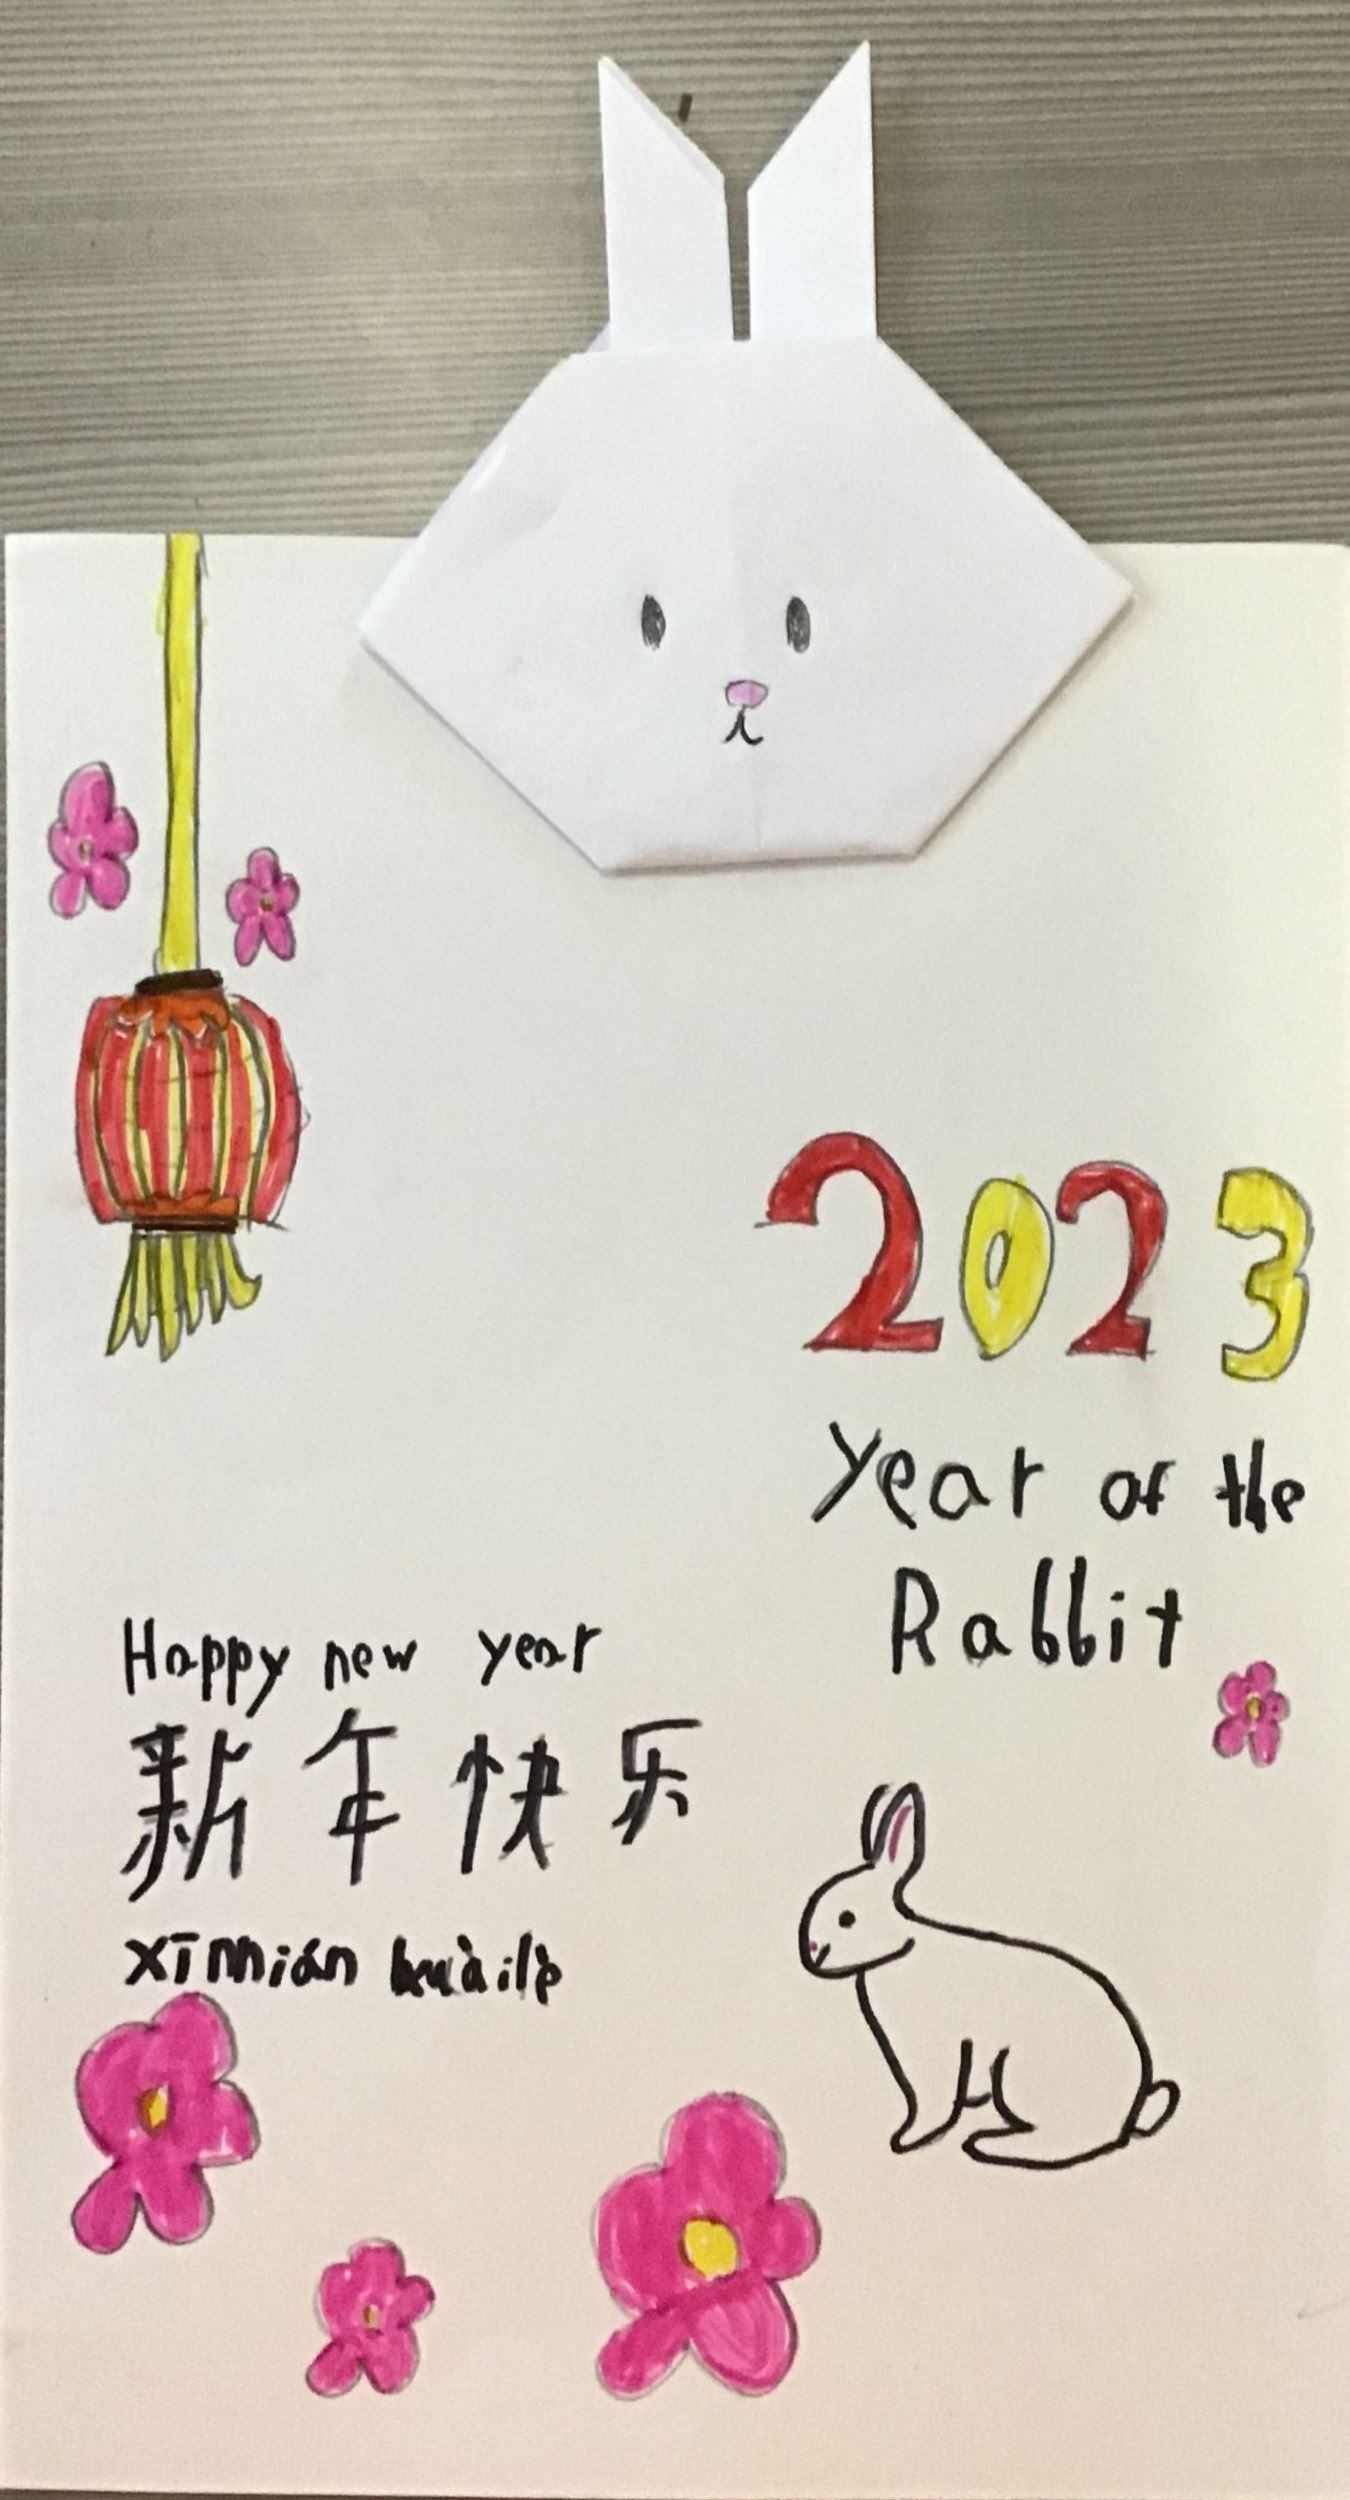 2023
Year of the
Rabbit
Happy new year
新年快乐
xīnnián kuàilè